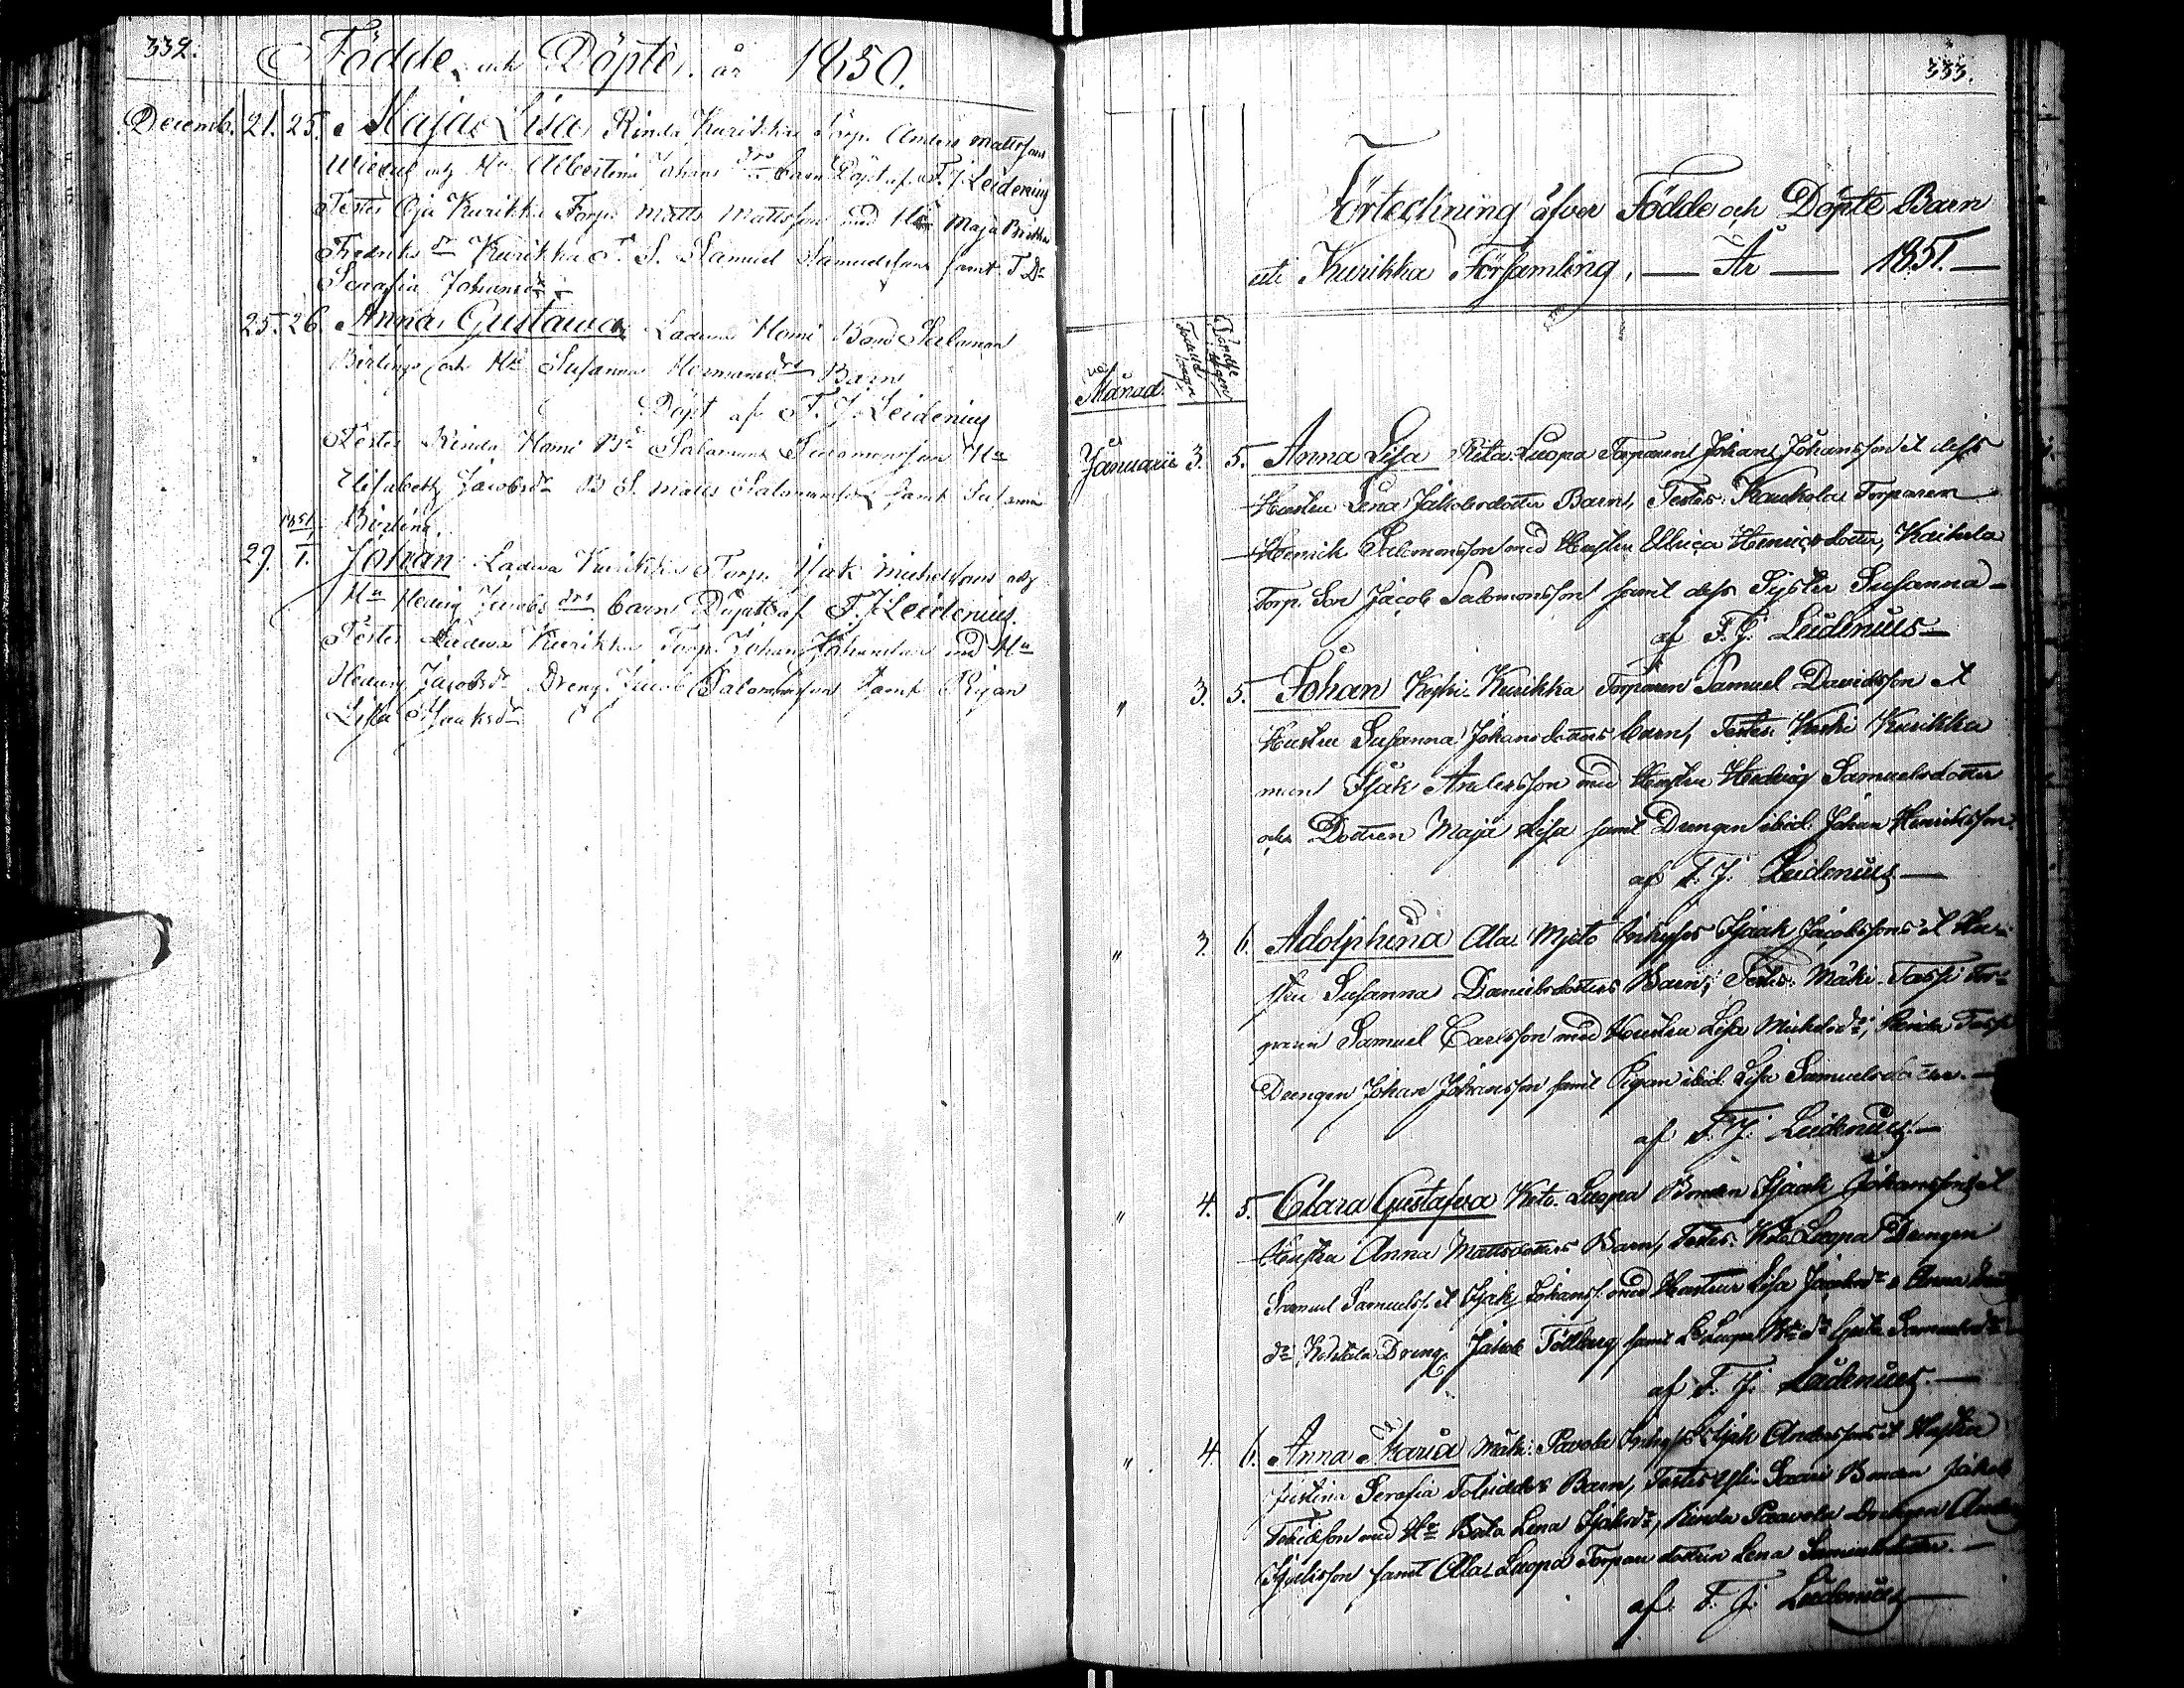 332.
Födde och Döpte år 1850.
Decemb. 21. 25. Maja Lisa Rinda Kurikka Torp. Anders Mattssons
och Hu Albertina Johans drs barn Döpt af F. J. Leidenius
Testes Oja Kurikka Torp. Matts Mattsson med Hu Maja Brita
Fredriks dr Kurikka T. S. Samuel Samuelsson samt T. Dr
Serafia Johansdr
25. 26. Anna Gustawa Laduma Homi Bond Salomon
Börlings och Hu Susanna Hermansdrs Barn
Döpt af F. J. Leidenius
Testes Rinda Homi Bd Salomon Salomonsson Hu
Elisabeth Jacobsdr B. S. Matts Salomonsson samt Susanna
Börling
1851
29. 1. Johan Laduma Kurikka Torp. Isak Michelssons och
Hu Hedvig Jacobs drs barn Döpt af F. J. Leidenius.
Testes Kurikka Torp. Johan Johansson med Hu
Hedvig Jacobsdr Dreng Jacob Salomonsson samt Pigan
Lisa Isaksdr
333.
Förteckning öfver Födde och Döpte Barn
uti Kurikka Församling, — År — 1851. —
Månad. Födelse dagen Döpelse dagen
Januarii 3. 5. Anna Lisa Rita Luopa Torparen Johan Johansson et dess
Hustru Lena Jakobsdotter Barn, Testes: Kaukola Torparen
Henrik Salomonsson med Hustru Ulrica Henricsdotter, Kaikula
Torp. Son Jacob Salomonsson samt dess Syster Susanna —
af F. J. Leidenius —
" 3. 5. Johan Koski Kurikka Torparen Samuel Davidsson et
Hustru Susanna Johansdotters barn, Testes: Koski Kurikka
Isak Andersson med Hustru Hedvig Samuelsdotter
och Dottren Maja Lisa samt Drengen ibid. Johan Henriksson.
af F. J. Leidenius —
" 3. 6. Adolphina Ala Myto Inhyses Isaak Jacobssons et Hu-
stru Susanna Danielsdotters Barn, Testes: Mäki Tassi Tor-
paren Samuel Carlsson med Hustru Lisa Michelsdr, Rinda Tassi
Drengen Johan Johansson samt Pigan ibid. Lisa Samuelsdotter. —
af F. J. Leidenius. —
" 4. 5. Clara Gustafva Koto Luopa Bonden Isaak Johanssons et
Hustru Anna Mattsdotters Barn, Testes: Koto Luopa Drengen
Samuel Samuelss. et Isak Johanss. med Hustrur Lisa Jacobsdr & Anna
dr Dreng Jakob Töllberg samt Luopa Greta Samuelsdr
af F. J. Leidenius. —
" 4. 6. Anna Maria Mäki Pavola Inhyses Isak Anderssons et Hustru
Justina Serafia Tobiædotters Barn, Testes: Yli Saari Bonden Jakob
Tobiæson med Hu Beata Lena Isaksdr, Rinda Paavola Drengen Anders
samt Ala Luopa Torpare dottren Lena Samuelsdotter. —
af F. J. Leidenius —